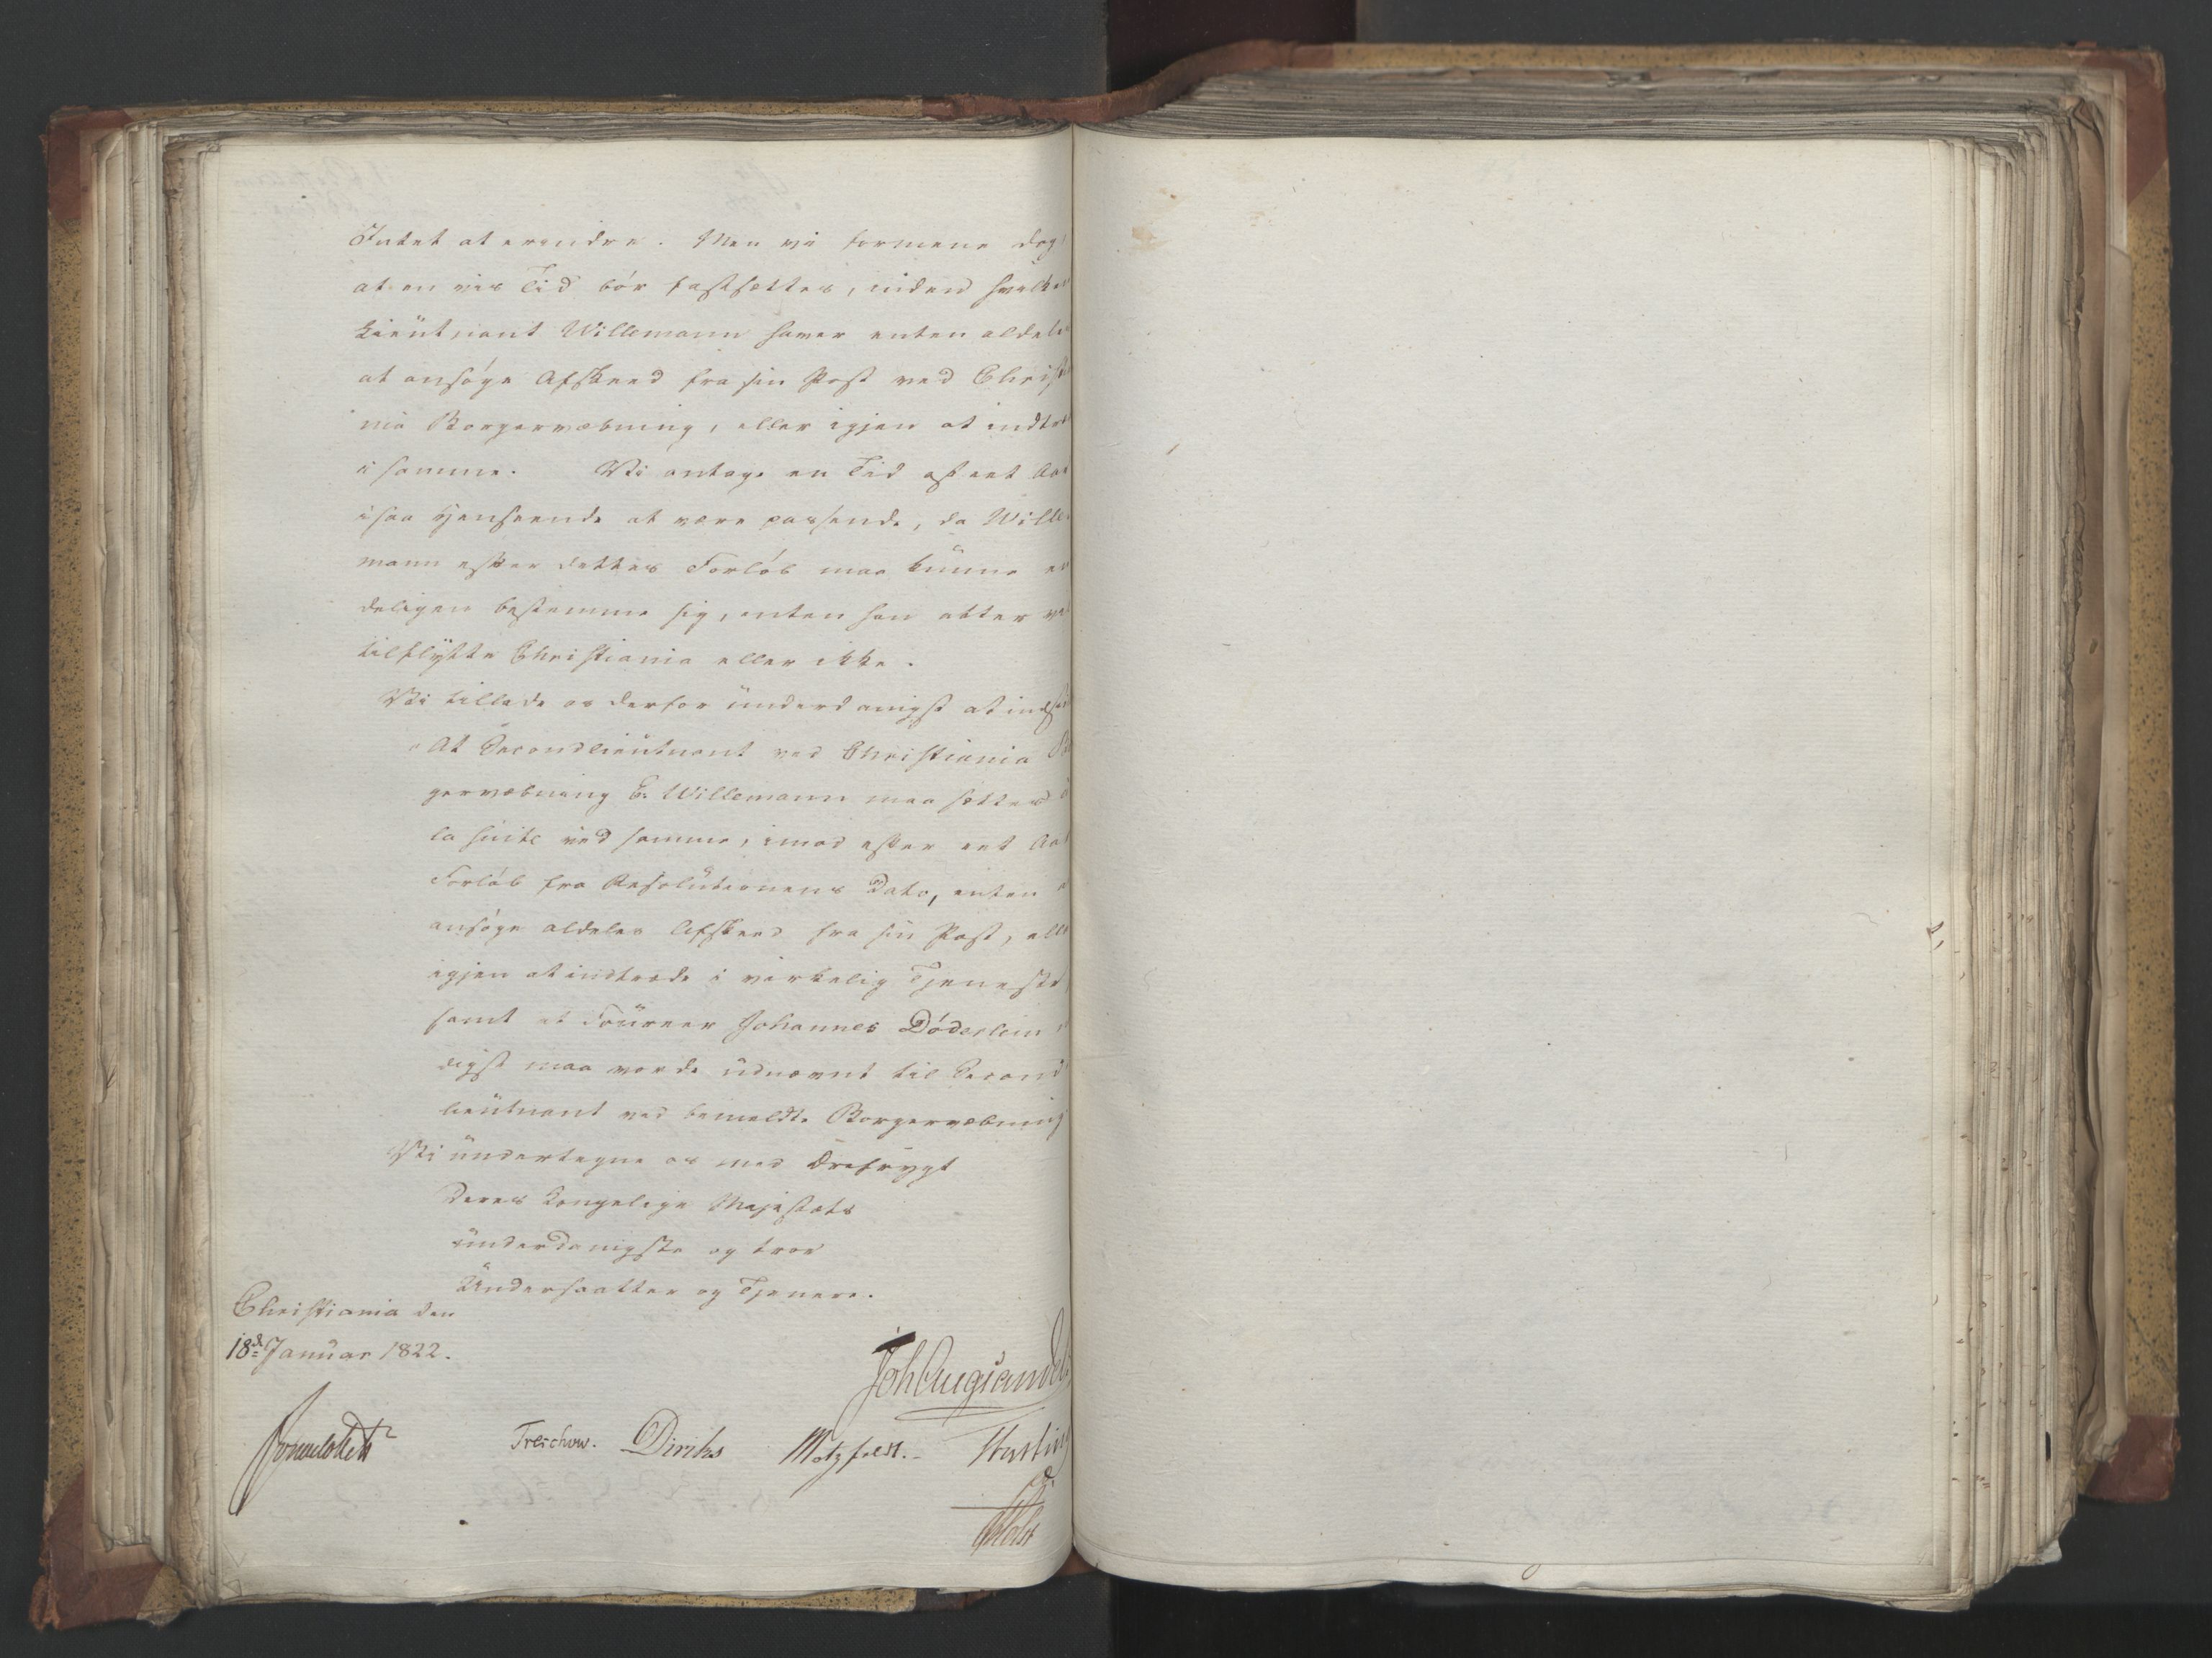 Intet at erindre. Men vi formene dog
at en vis Tid bör fastsættes, inden hvilken
Lieutnant Willemann haver enten aldeles
at ansöge Afskeed fra sin Post ved Christia
nia Borgervæbning, eller igjen at indtræ
i samme. Vi antage en Tid af eet Aar
i saa Henseende at være passende, da Wille
mann efter dettes Forlöb maa kunne en
deligen bestemme sig, enten han atter vil
tilflytte Christiania eller ikke.
Vi tillade os derfor underdanigst at indst
At Secondlieutnant ved Christiania Bor
gervæbning E. Willemann maa sættes à
la suite ved samme, imod efter eet Aars
Forlöb fra Resolutionens Dato, enten at
ansöge aldeles Afskeed fra sin Post, eller
igjen at indtræde i virkelig Tjeneste,
samt at Foureer Johannes Döderlein
digst maa vorde udnævnt til Second
lieutnant ved bemeldte Borgervæbning
Vi undertegne os med Ærefrygt
Deres Kongelige Majestæts
underdanigste og troe
Undersaatter og Tjenere.
Christiania den
18d Januar 1822.
Joh Aug Sandels
Sommerhielm Treschow. Diriks Motzfeldt. Hartling
Holst